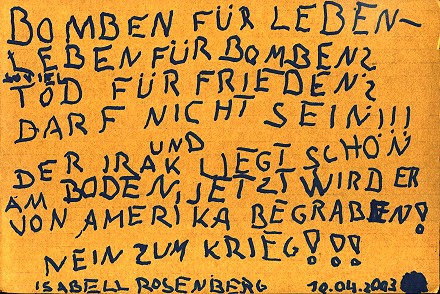 BOMBEN FÜR LEBEN-
LEBEN FÜR BOMBEN?
SOVIEL
TOD FÜR FRIEDEN?
DARF NICHT SEIN!!!
UND
DER IRAK LIEGT SCHÖN
AM BODEN, JETZT WIRD ER
VON AMERIKA BEGRABEN!
NEIN ZUM KRIEG!!!
ISABELL ROSENBERG 10.04.2003